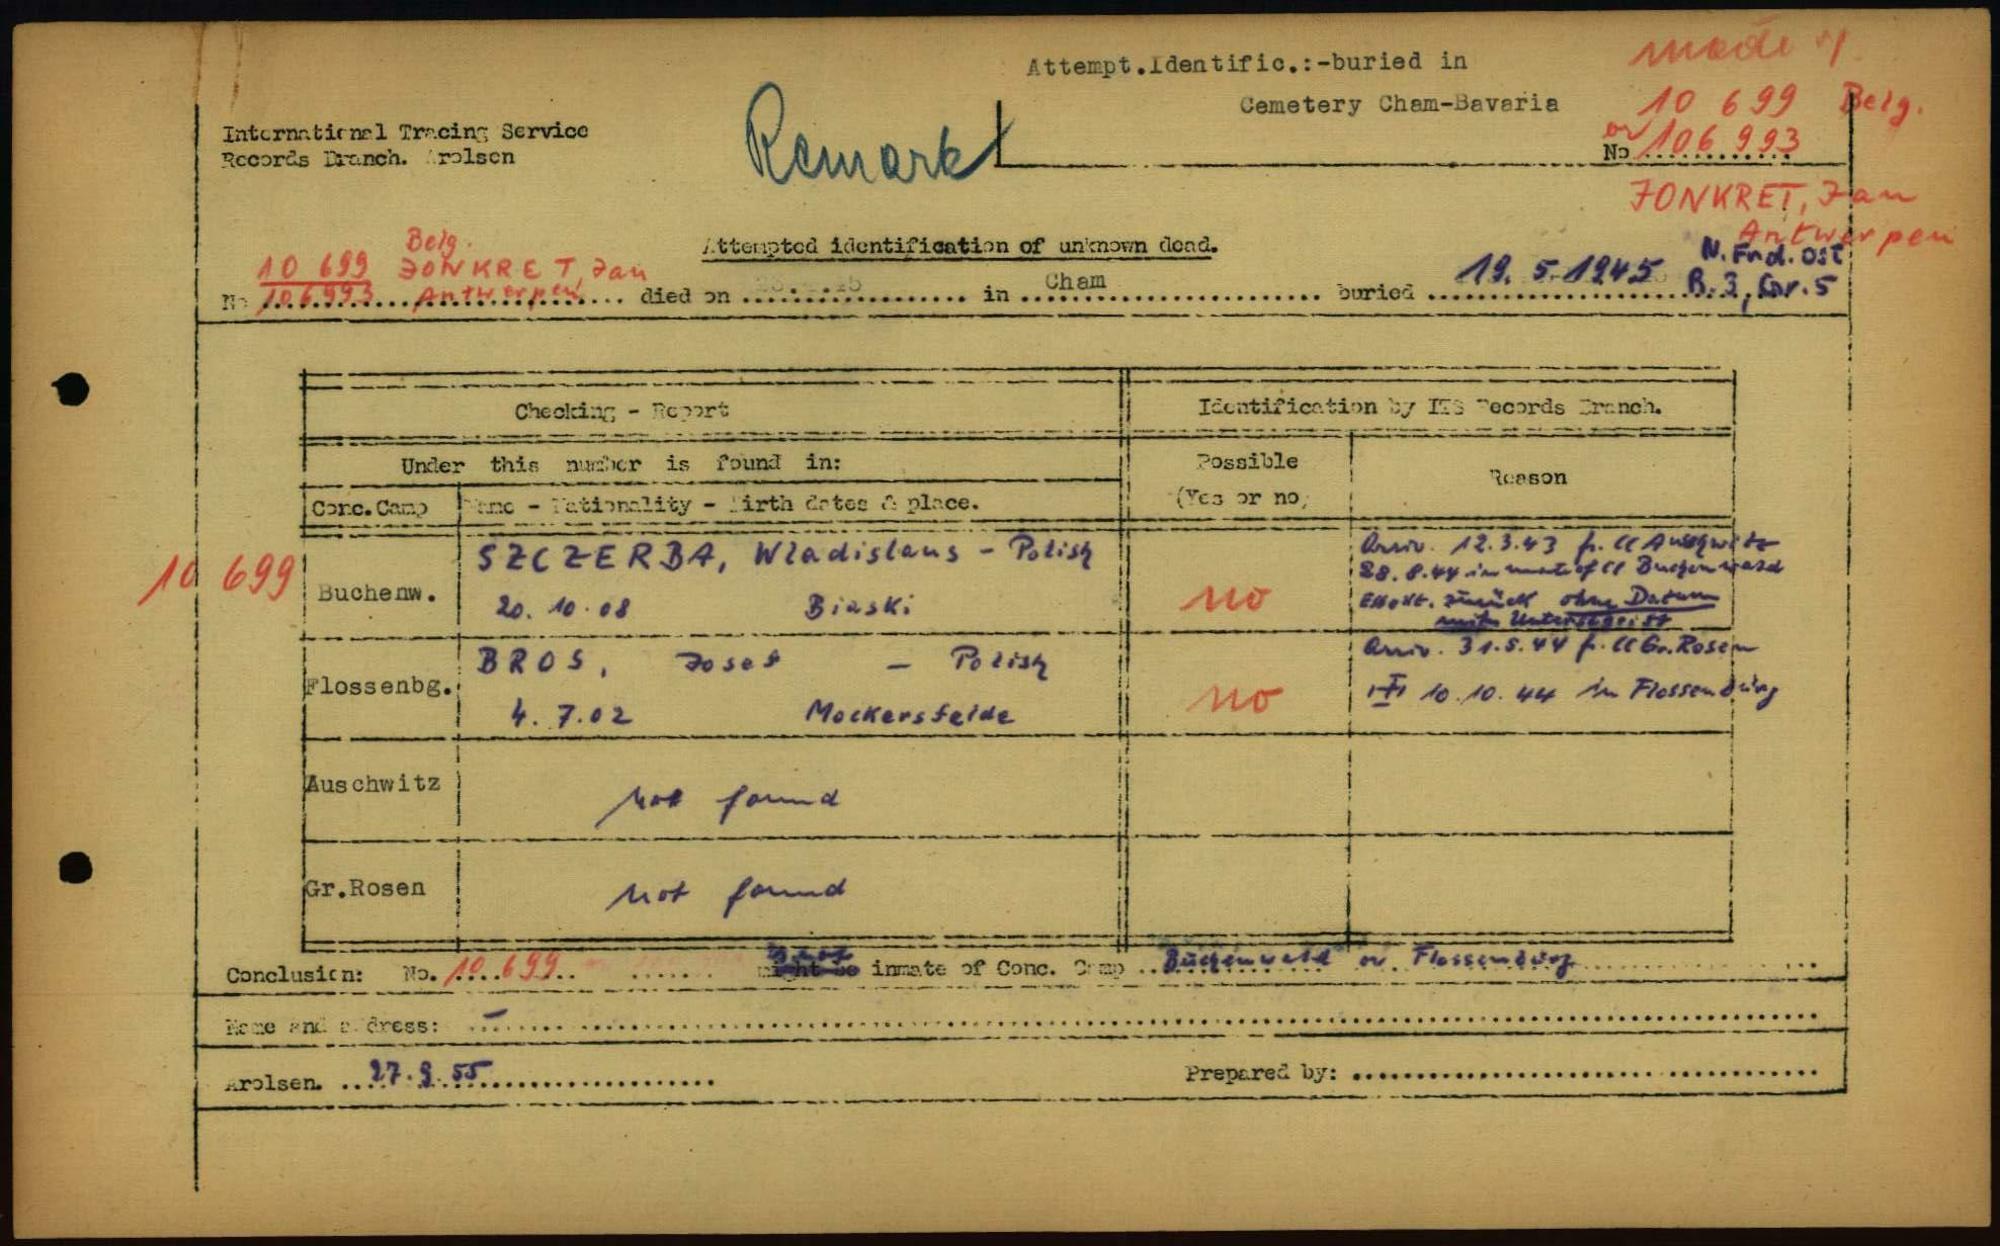 Attempt.Identific.:-buried in
Cemetery Cham-Bavaria
10 699 Belg.
or
No 106 993
JONKRET, Jan
Antwerpen
International Tracing Service
Records Branch. Arolsen
Remark
Attempted identification of unknown dead.
10 699 Belg. JONKRET, Jan
No 106993 Antwerpen died on in Cham buried 19.5.1945 N.Frd.Ost
B.3, Gr.5
Checking - Report
Identification by ITS Records Branch.
Under this number is found in:
Possible
(Yes or no)
Reason
Conc.Camp
Name - Nationality - Birth dates & place.
10 699
Buchenw.
SZCZERBA, Wladislaus - Polish
20.10.08 Biaski
no
Arriv. 12.3.43 fr. CC Auschwitz
28.8.44 inmate of CC Buchenwald
Effekt. zurück ohne Datum
mit Unterschrift
Flossenbg.
BROS, Josef - Polish
4.7.02 Mockersfelde
no
Arriv. 31.5.44 fr. CC Gr.Rosen
10.10.44 in Flossenbürg
Auschwitz
not found
Gr.Rosen
not found
Conclusion: No. 10 699 inmate of Conc. Camp Buchenwald or Flossenbürg
Name and address: -
Arolsen. 27.9.55
Prepared by: